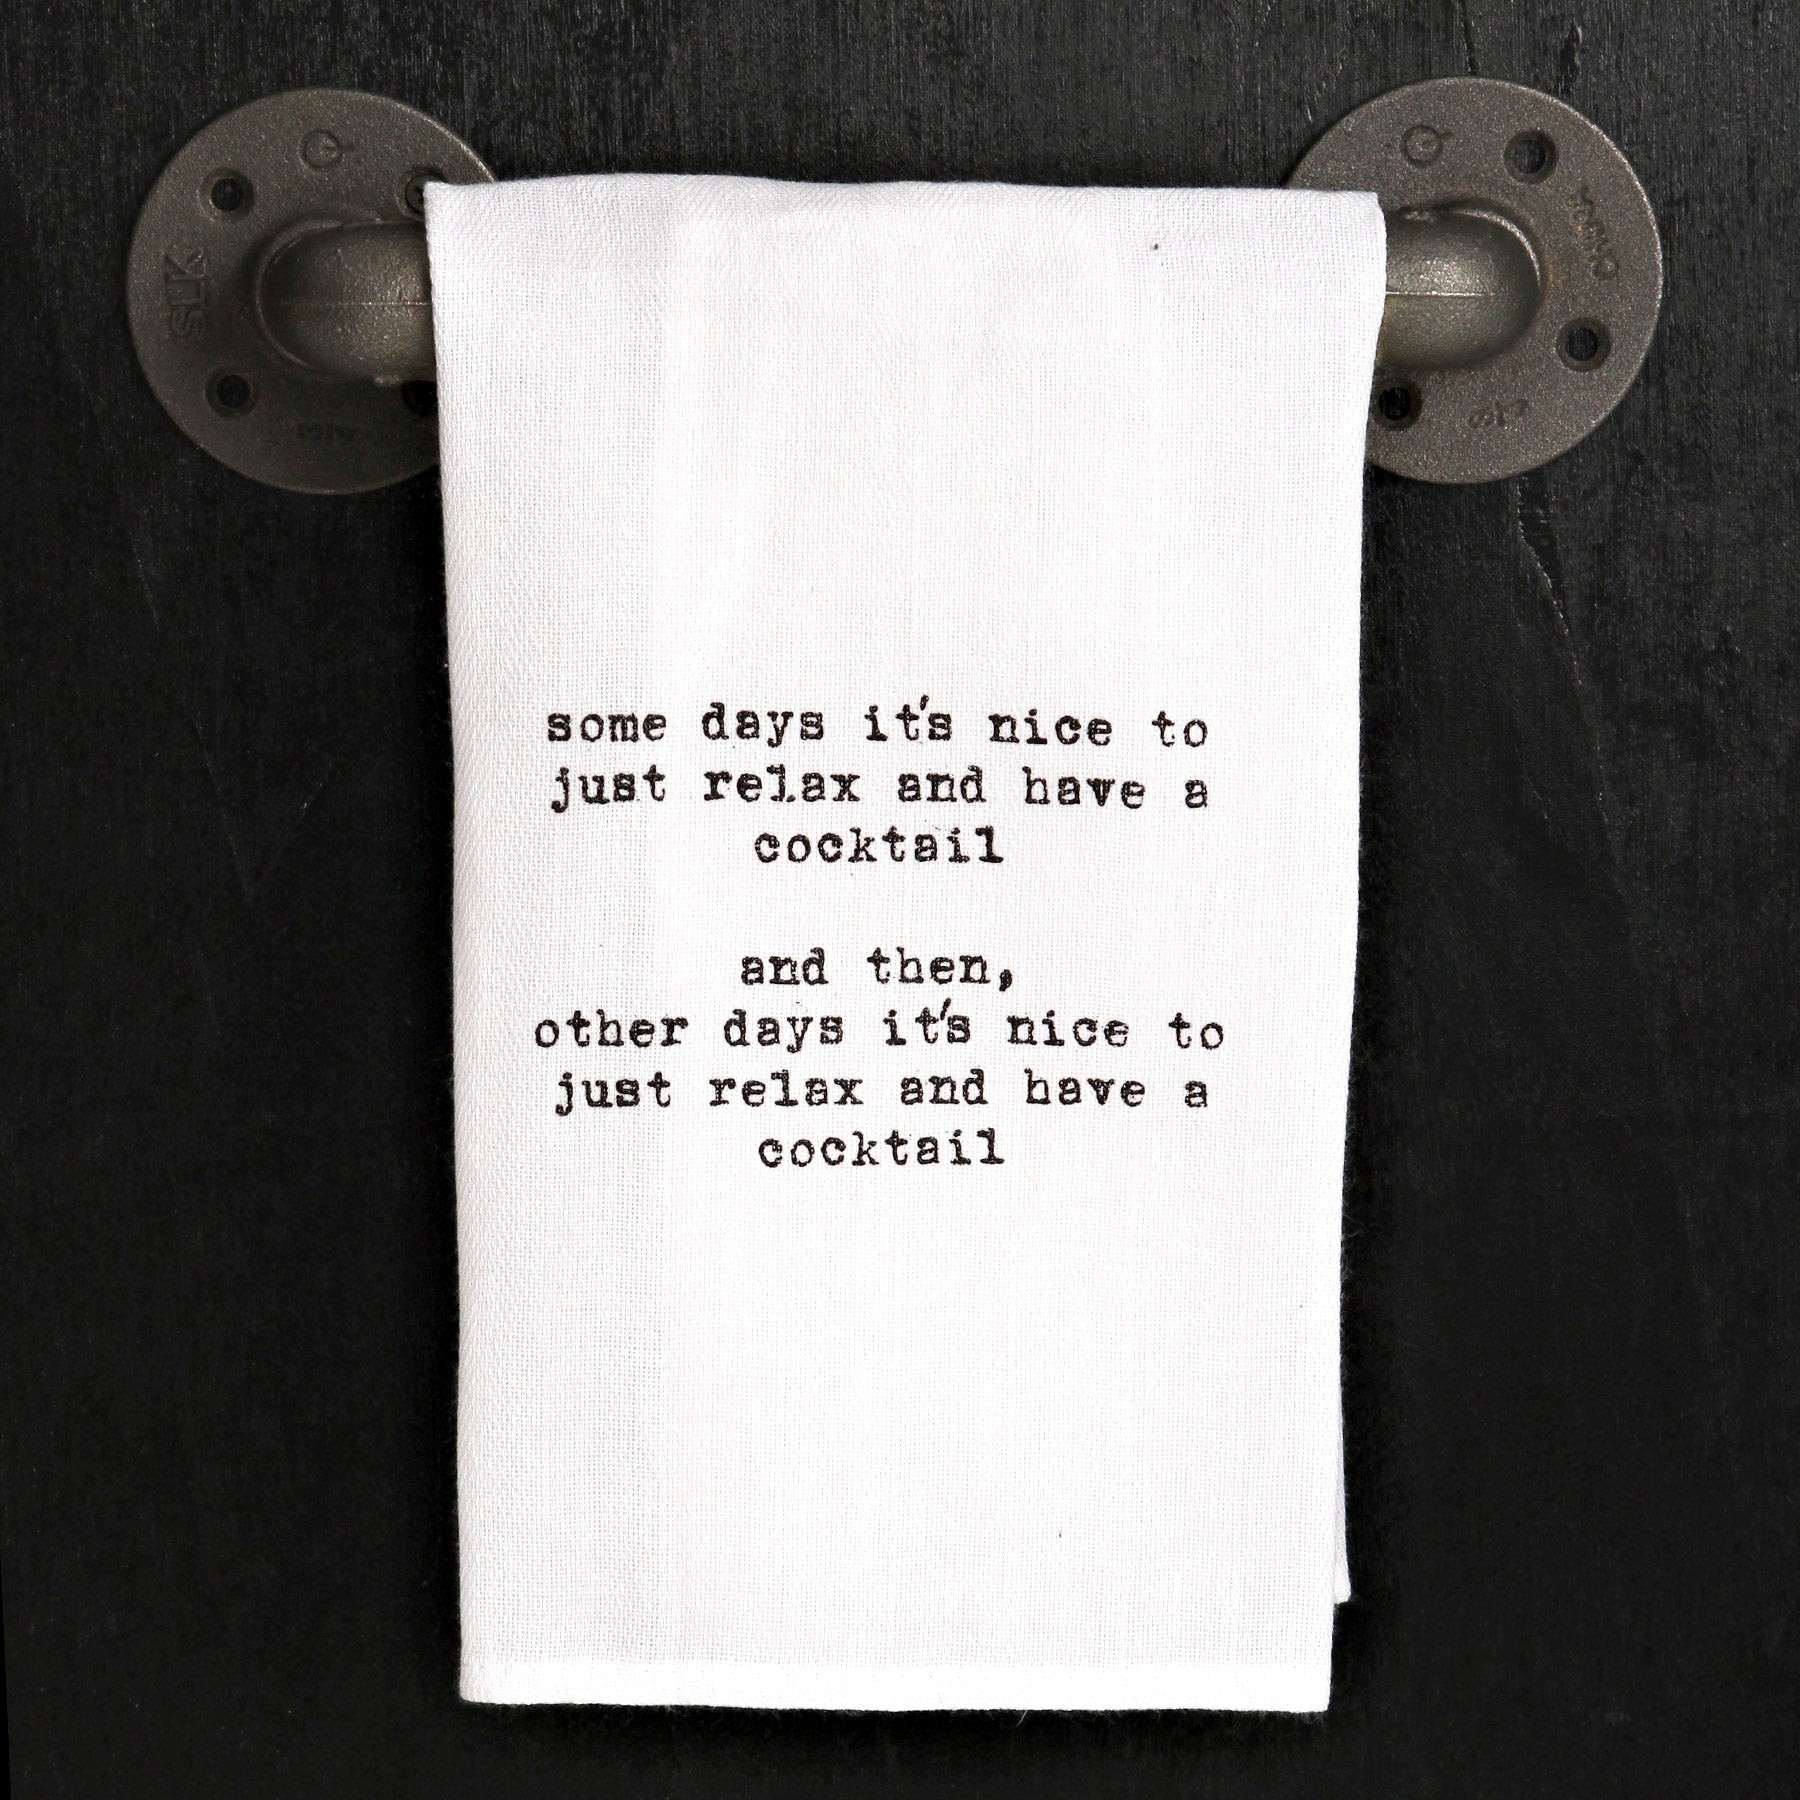 SLK
some days it's nice to
just relax and have a
cocktail
and then,
other days it's nice to
just relax and have a
cocktail